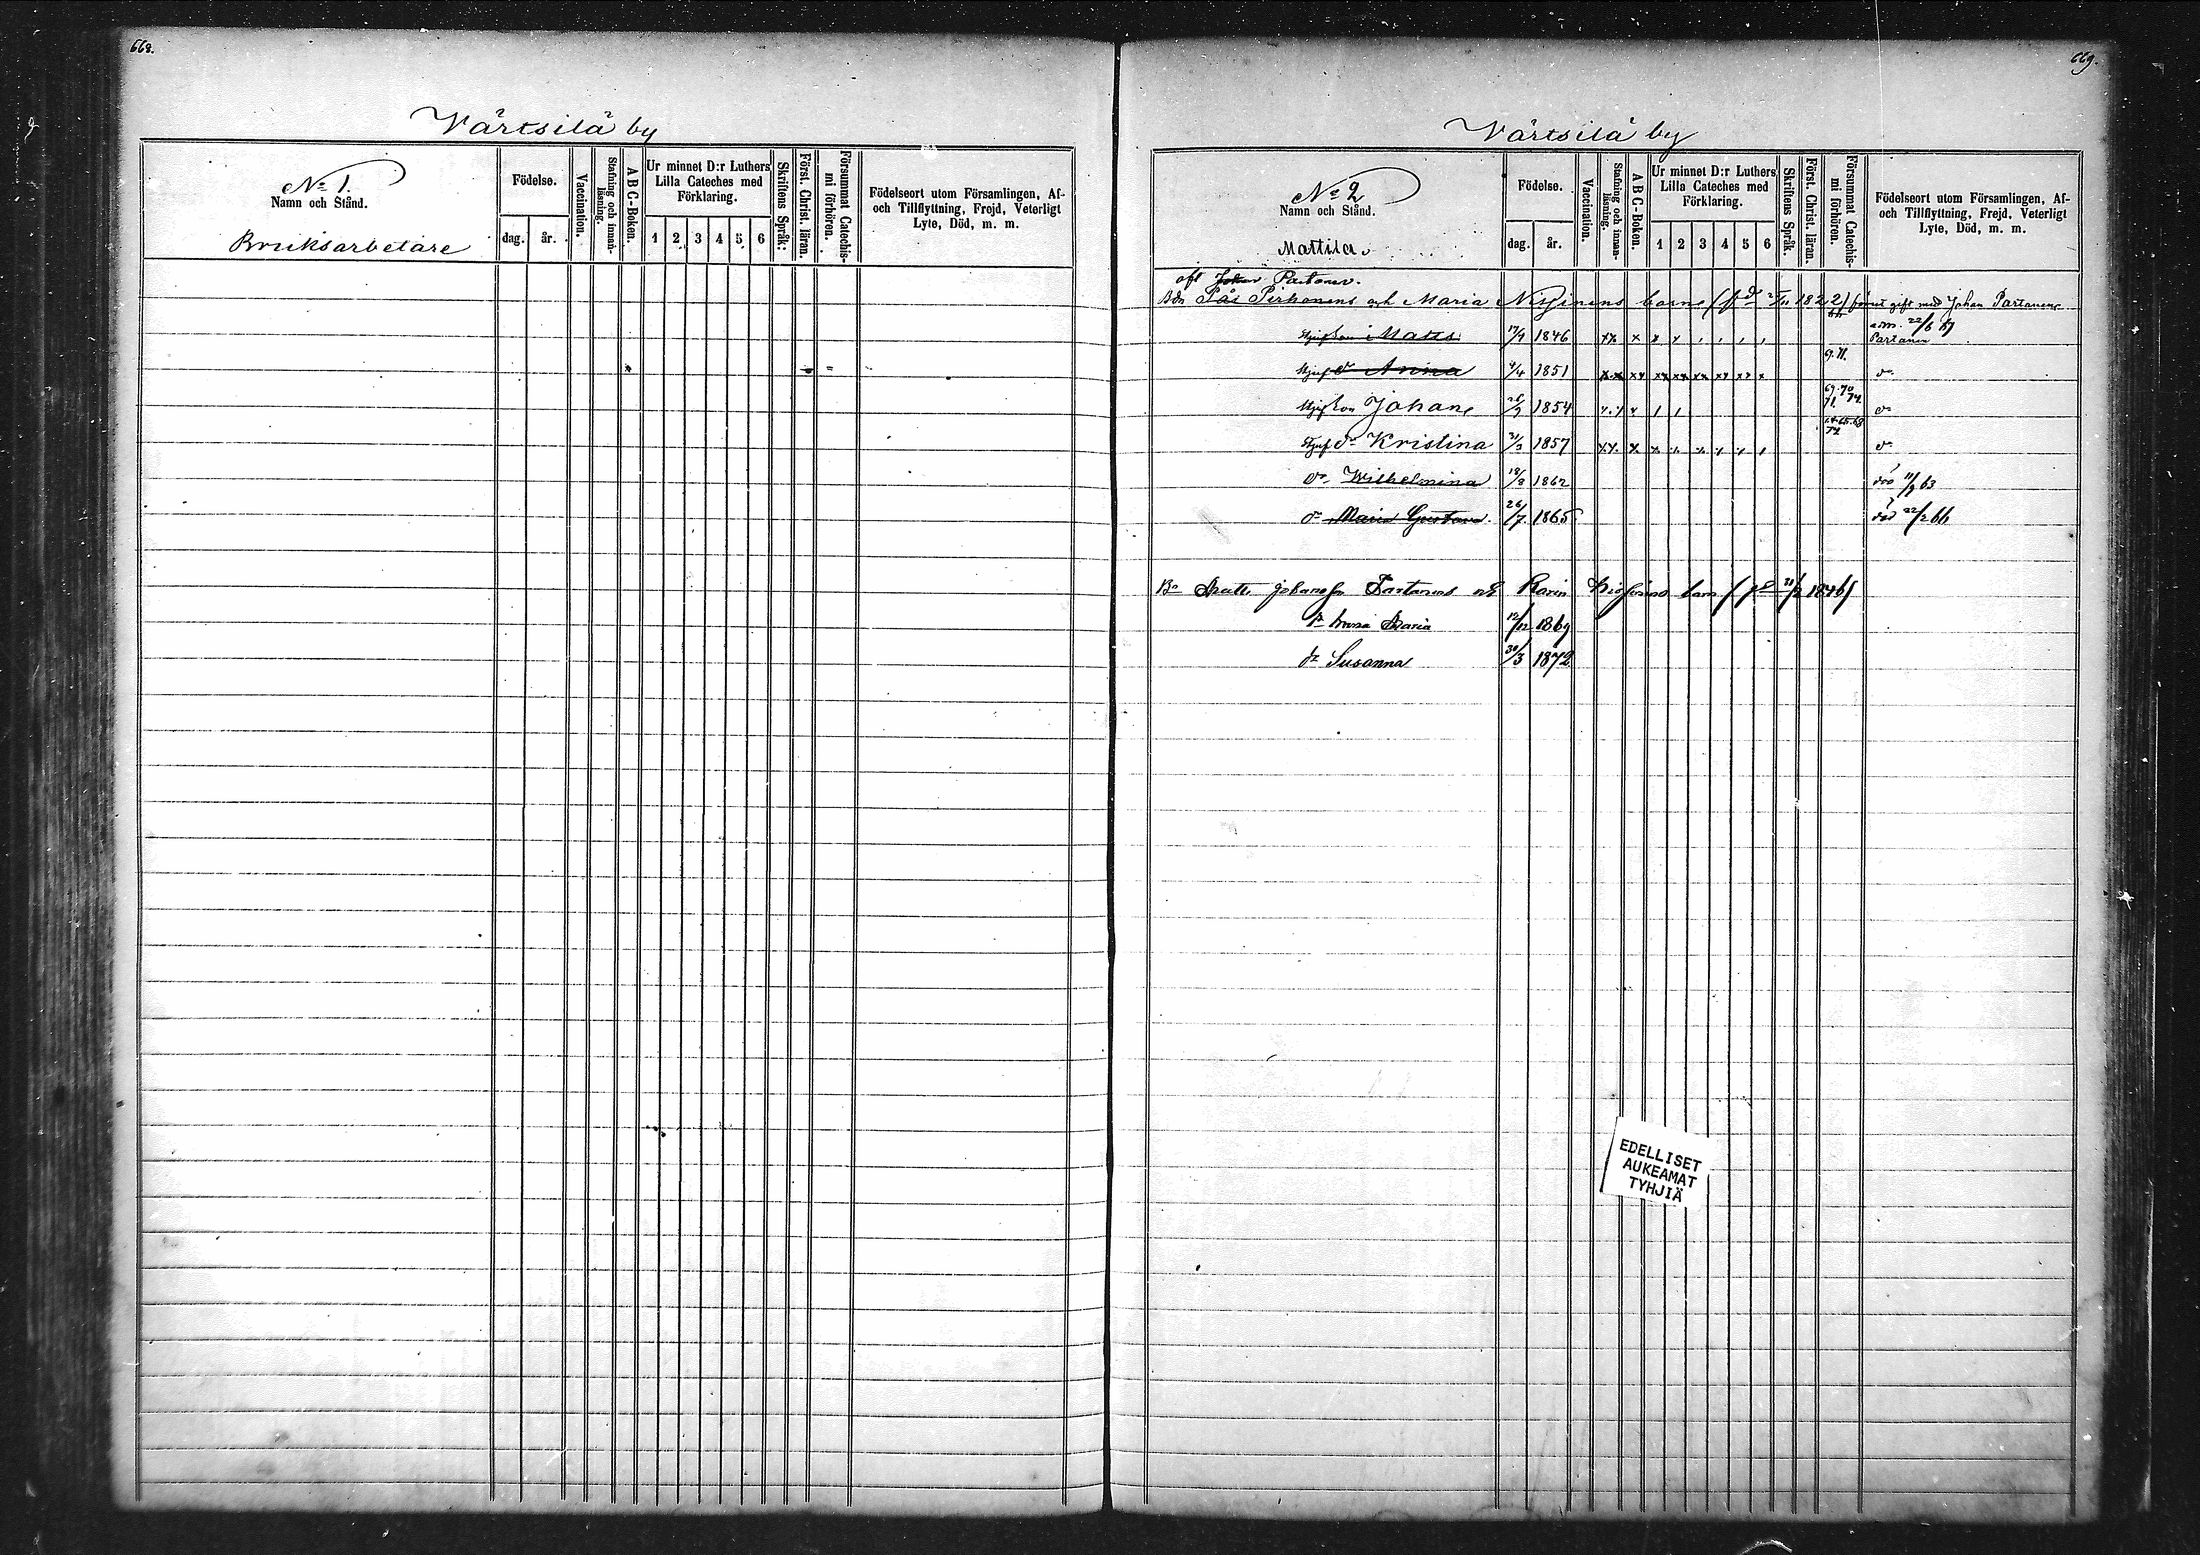 668.
Värtsilä by
No 1.
Namn och Stånd.
Bruksarbetare
Födelse.
dag. år.
Vaccination.
Stafning och innan-läsning.
A B C-Boken.
Ur minnet D:r Luthers
Lilla Cateches med
Förklaring.
1 2 3 4 5 6
Skriftens Språk:
Först. Christ. läran.
Försummat Catechis-mi förhören.
Födelseort utom Församlingen, Af-
och Tillflyttning, Frejd, Veterligt
Lyte, Död, m. m.
669.
Värtsilä by
No 2
Namn och Stånd.
Mattila.
Födelse.
dag. år.
Vaccination.
Stafning och innan-läsning.
A B C-Boken.
Ur minnet D:r Luthers
Lilla Cateches med
Förklaring.
1 2 3 4 5 6
Skriftens Språk.
Först. Christ. läran.
Försummat Catechis-mi förhören.
Födelseort utom Församlingen, Af-
och Tillflyttning, Frejd, Veterligt
Lyte, Död, m. m.
Johan Partanen.
Pirhonens och Maria barn 1822) gift med Johan Partanens
Mats 17/9 1846 x x x x 22/6
Partanen
Anna 4/4 1851 69. 71. do
son Johan 1854 69. 70 71. 74 do
do Kristina 21/3 1857 do
do Wilhelmina 18/3 1862 död 11/9 63
do Maria Gustava 26/7 1865 död 22/2 66
Partanens Karin barn 1846)
dr Anna Maria 12/12 1869
dr Susanna 30/3 1872
EDELLISET
AUKEAMAT
TYHJIÄ